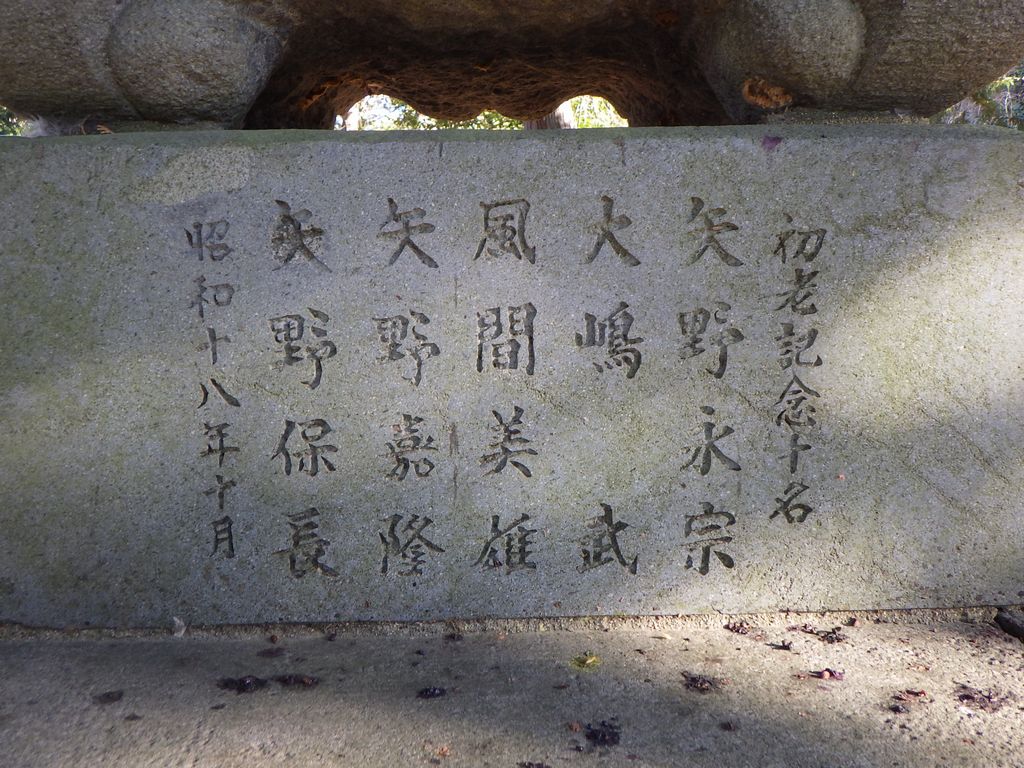 初老記念十名
矢野永宗
大嶋武
風間美雄
矢野嘉隆
矢野保長
昭和十八年十月